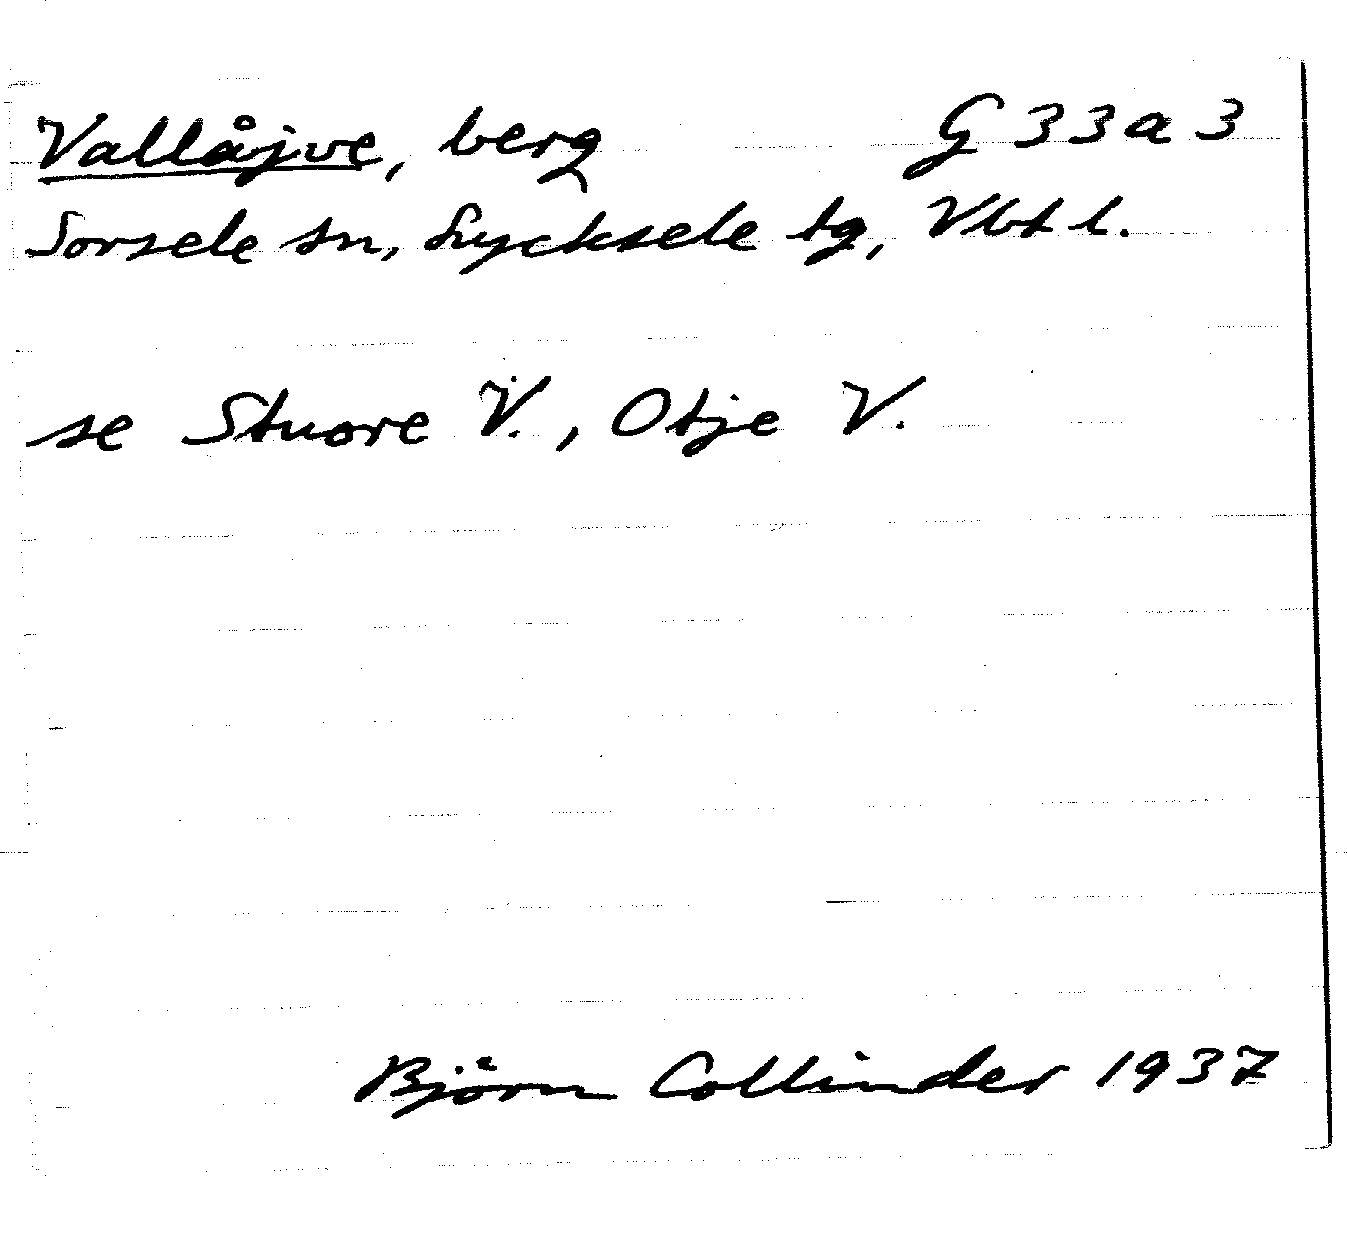 Vallåjve, berg G 33a 3
Sorsele sn, Lycksele tg, Vbt l.
se Stuore V., Otje V.
Björn Collinder 1937